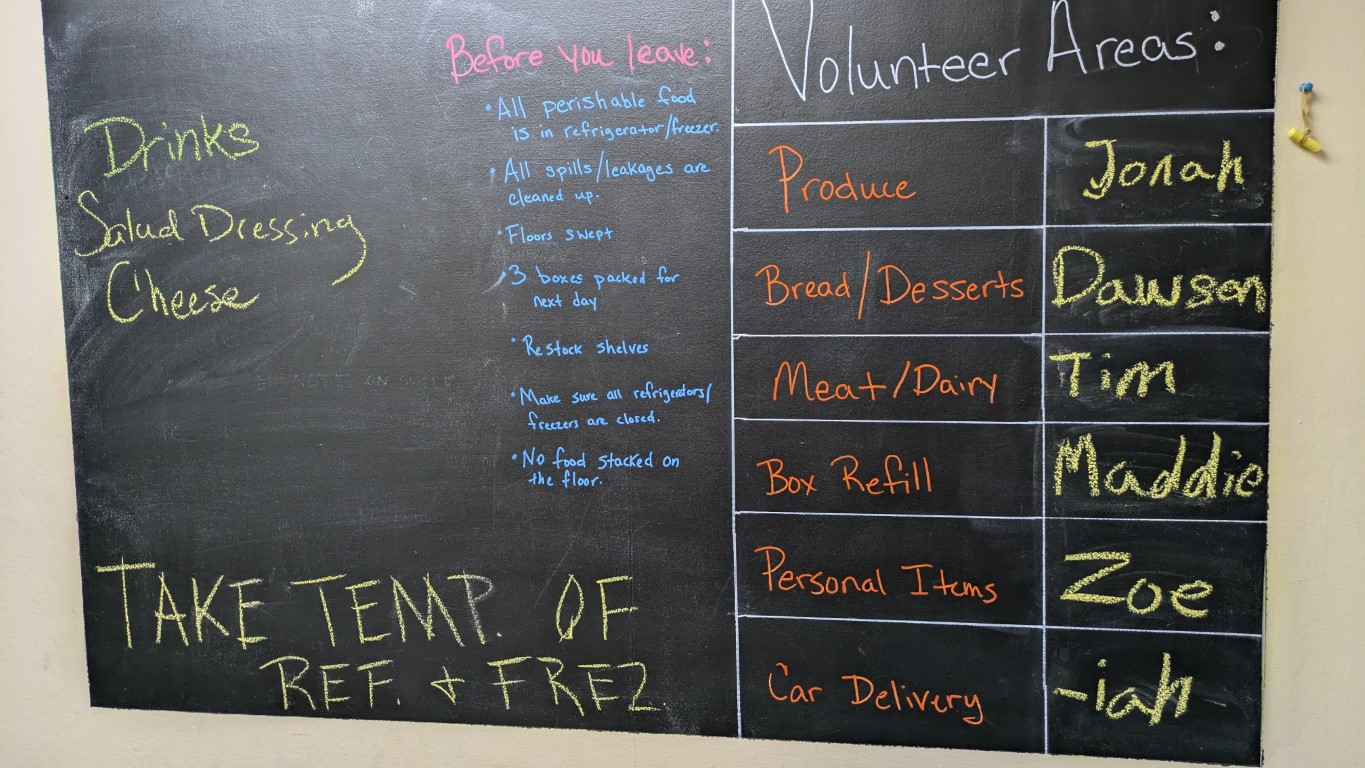 Drinks
Salad Dressing
Cheese
TAKE TEMP. OF
REF. + FREZ
Before you leave:
• All perishable food
is in refrigerator/freezer.
• All spills/leakages are
cleaned up.
• Floors swept
• 3 boxes packed for
next day
• Restock shelves
• Make sure all refrigerators/
freezers are closed.
• No food stacked on
the floor.
Volunteer Areas:
Produce Jonah
Bread/Desserts Dawson
Meat/Dairy Tim
Box Refill Maddie
Personal Items Zoe
Car Delivery -iah